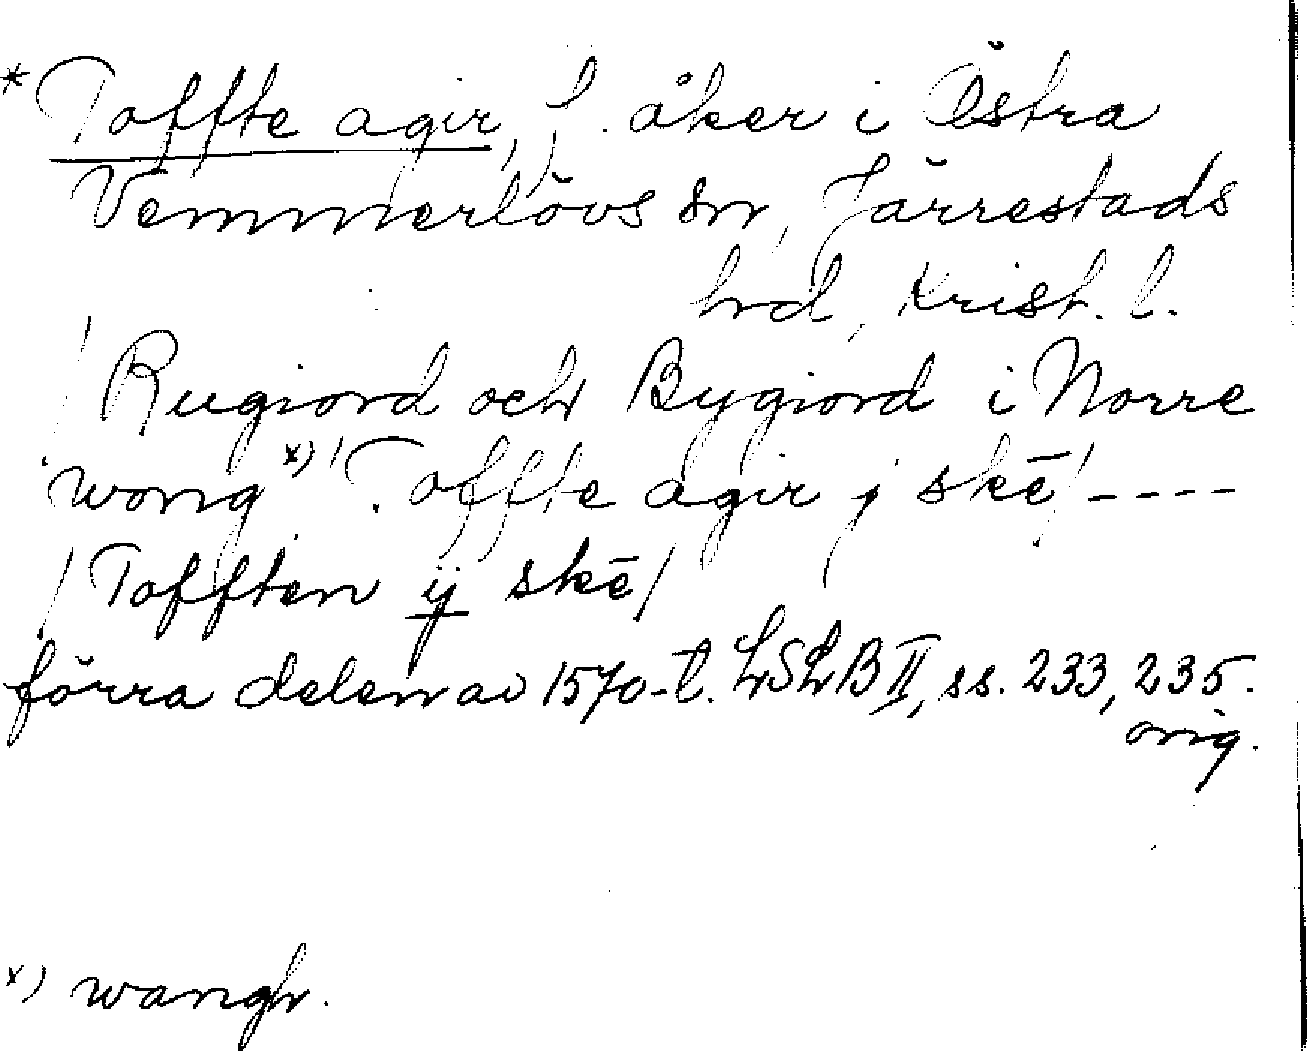 * Toffte agir, f. åker i Östra
Vemmerlövs sn, Järrestads
hd, Krist. l.
/Rugiord och Bygiord i Norre
wong x)/ Toffte agir j skē/----
/Tofften ij skē/
förra delen av 1570-t. LSLB II, ss. 233, 235.
orig.
x) wangh.